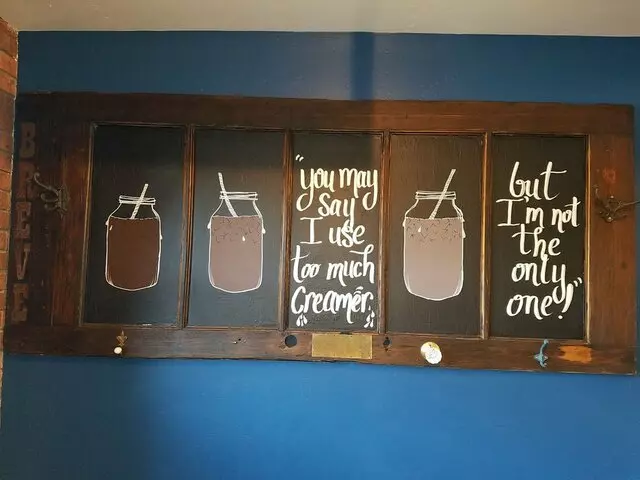 BREVE
"you may
say
I use
too much
Creamer.
but
I'm not
the
only
one!"